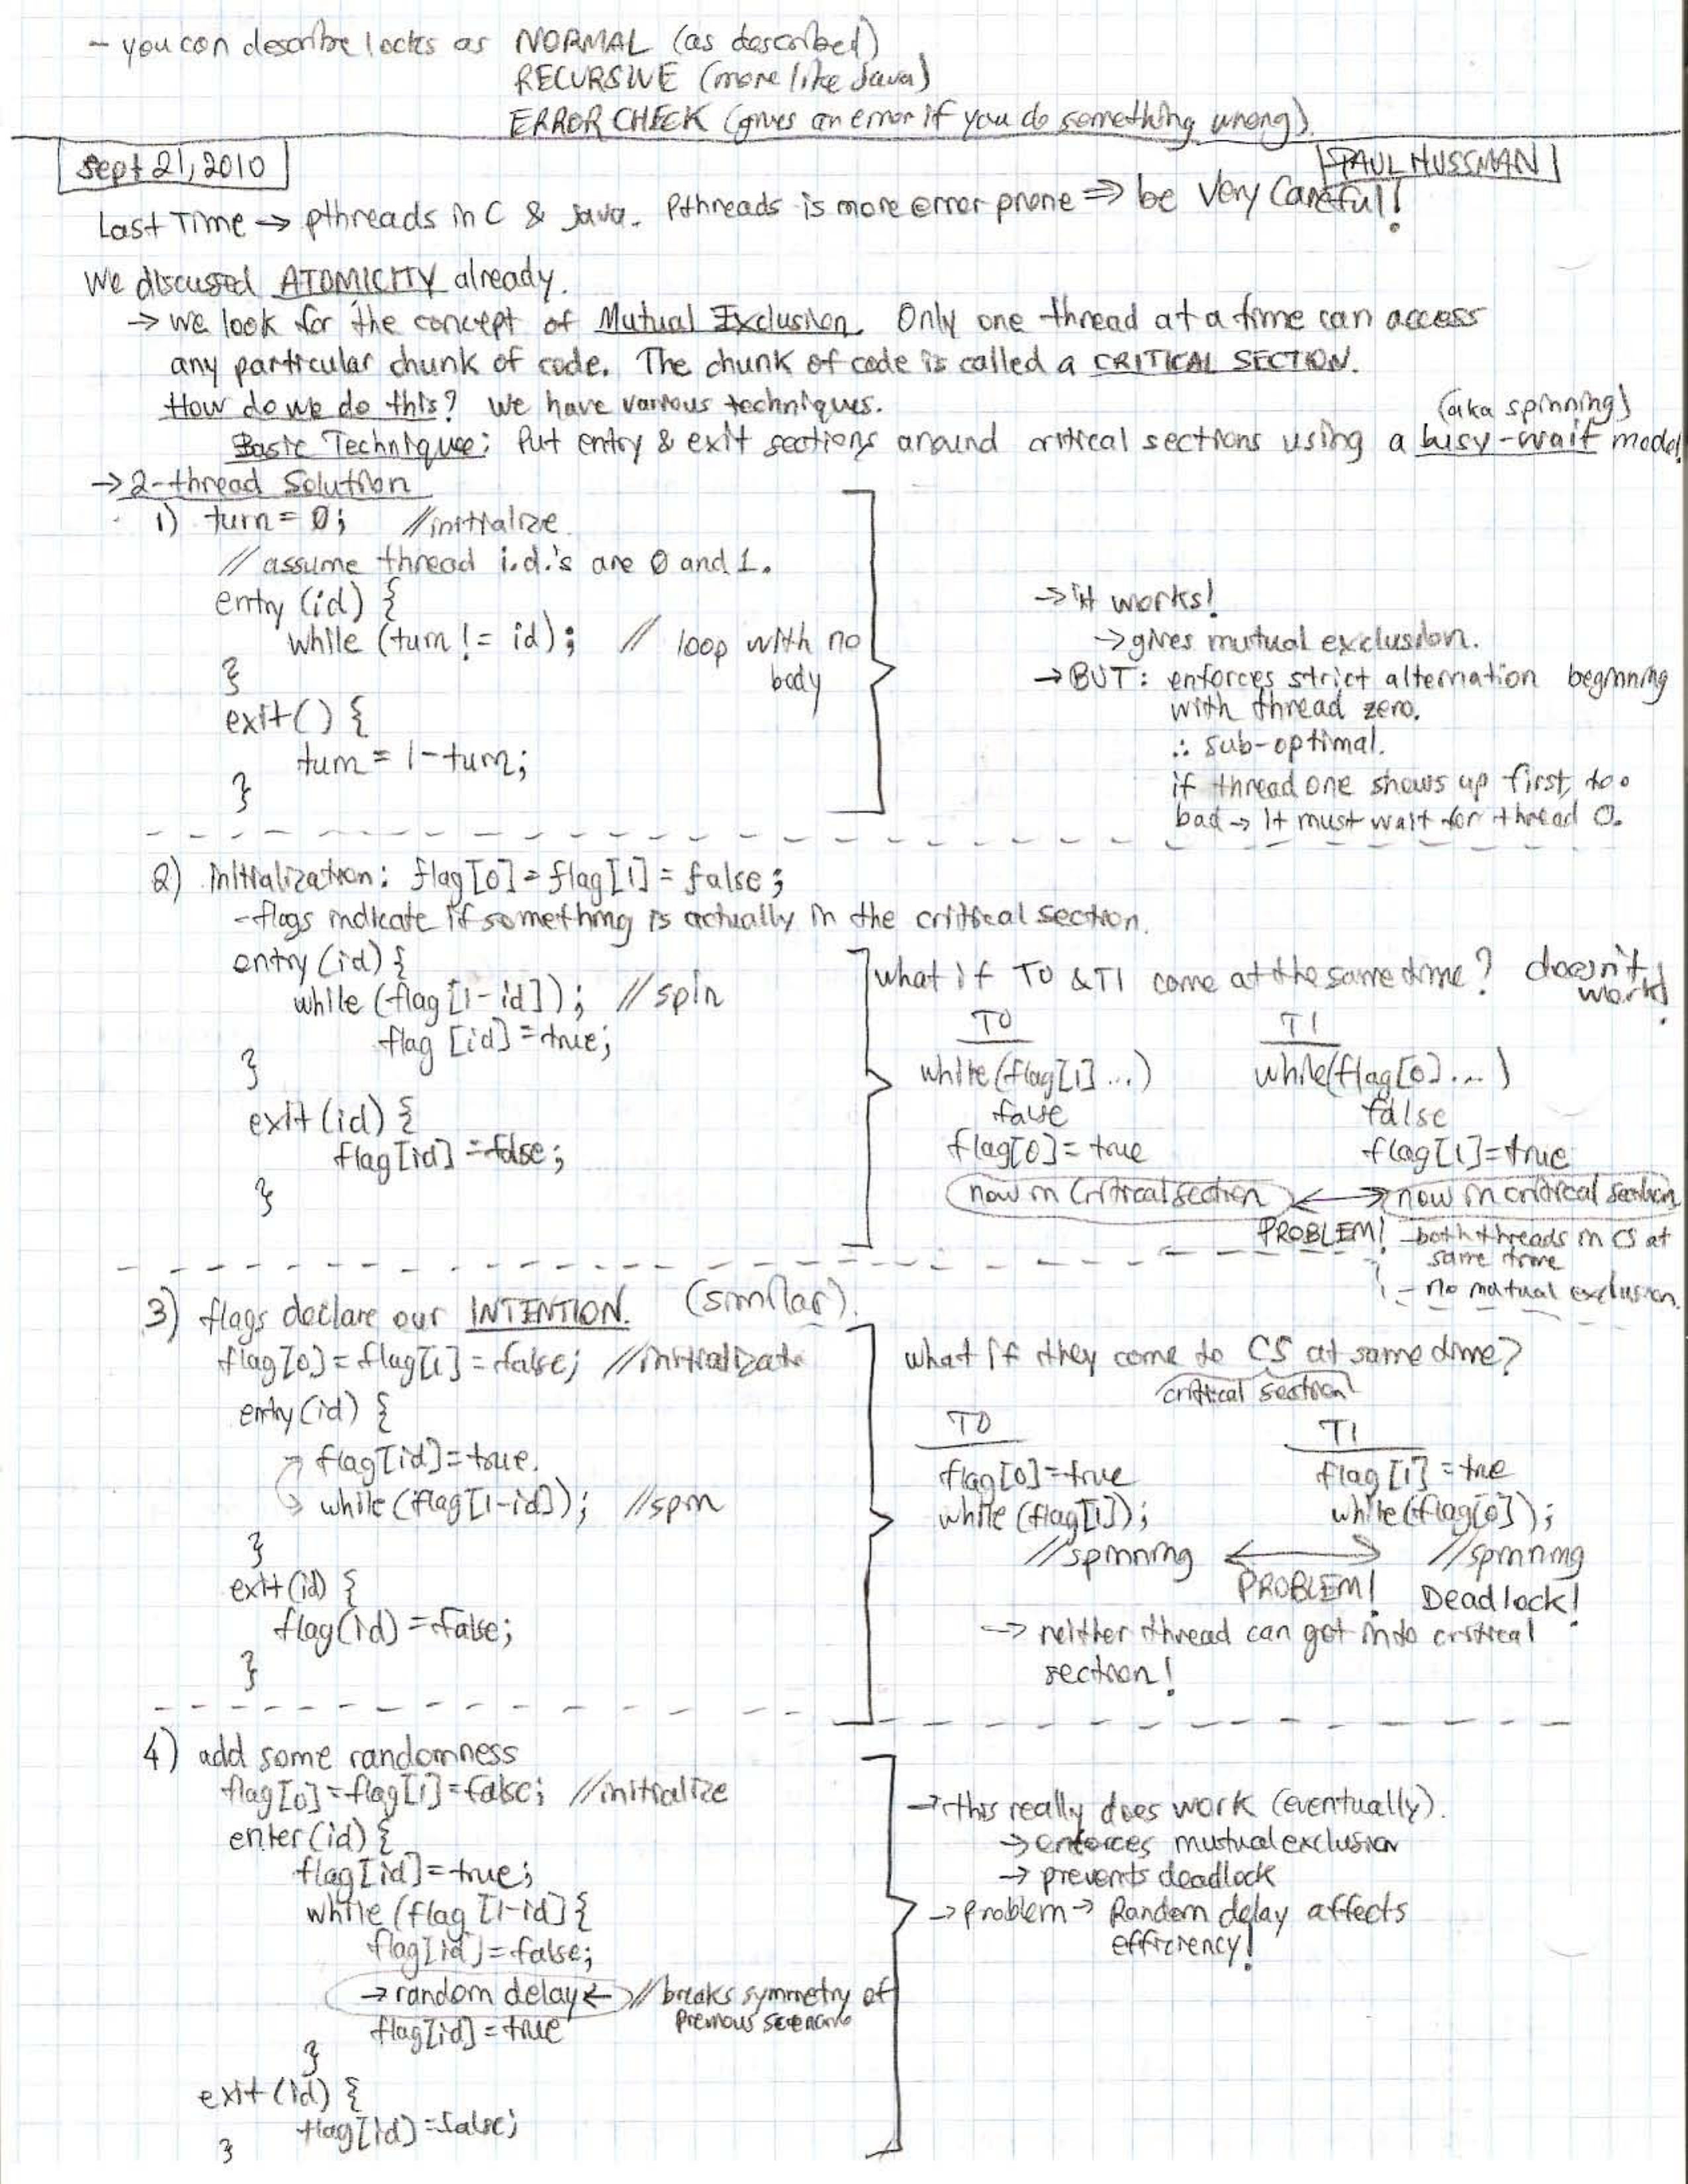 - you can describe locks as NORMAL (as described)
RECURSIVE (more like Java)
ERROR CHECK (gives an error if you do something wrong).
Sept 21, 2010
PAUL HUSSMAN
Last Time → pthreads in C & Java. Pthreads is more error prone ⇒ be Very Careful!
We discussed ATOMICITY already.
→ we look for the concept of Mutual Exclusion. Only one thread at a time can access
any particular chunk of code. The chunk of code is called a CRITICAL SECTION.
How do we do this? We have various techniques.
(aka spinning)
Basic Technique: Put entry & exit sections around critical sections using a busy-wait model.
→ 2-thread Solution
1) turn = 0; //initialize
// assume thread i.d.'s are 0 and 1.
entry (id) {
while (turn != id); // loop with no
body
}
exit() {
turn = 1-turn;
}
→ it works!
→ gives mutual exclusion.
→ BUT: enforces strict alternation beginning
with thread zero.
∴ sub-optimal.
if thread one shows up first, too
bad → it must wait for thread 0.
2) initialization: flag[0] = flag[1] = false;
- flags indicate if something is actually in the critical section.
entry (id) {
while (flag[1-id]); //spin
flag [id] = true;
}
exit (id) {
flag[id] = false;
}
what if T0 & T1 come at the same time? doesn't
work!
T0 T1
while (flag[1] ...) while(flag[0] ...)
false false
flag[0] = true flag[1] = true
now in critical section ↔ now in critical section
PROBLEM! - both threads in CS at
same time
- no mutual exclusion.
3) flags declare our INTENTION. (similar).
flag[0] = flag[1] = false; //initializate
entry (id) {
flag[id] = true.
while (flag[1-id]); //spin
}
exit (id) {
flag(id) = false;
}
what if they come to CS at same time?
critical section
T0 T1
flag[0] = true flag[1] = true
while (flag[1]); while (flag[0]);
//spinning ↔ //spinning
PROBLEM! Deadlock!
→ neither thread can get into critical
section!
4) add some randomness
flag[0] = flag[1] = false; //initialize
enter (id) {
flag[id] = true;
while (flag [1-id] {
flag[id] = false;
→ random delay ← // breaks symmetry of
previous scenario
flag[id] = true
}
exit (id) {
flag[id) = false;
}
→ this really does work (eventually).
→ enforces mutual exclusion
→ prevents deadlock
→ problem → Random delay affects
efficiency!